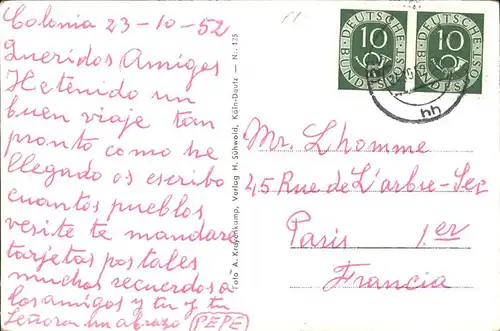 Colonia 23-10-52
Queridos Amigos
He tenido un
buen viaje tan
pronto como he
llegado os escribo
cuantos pueblos
vesite te mandare
tarjetas postales
muchos recuerdos a
los amigos y tu y tu
Señora un abrazo (PEPE)
Foto A. Kreyenkamp, Verlag H. Schwold, Köln-Deutz — N: 125
DEUTSCHE BUNDESPOST
10
DEUTSCHE BUNDESPOST
10
Mr. Lhomme
45 Rue de L'arbre-Sec
Paris 1.er
Francia